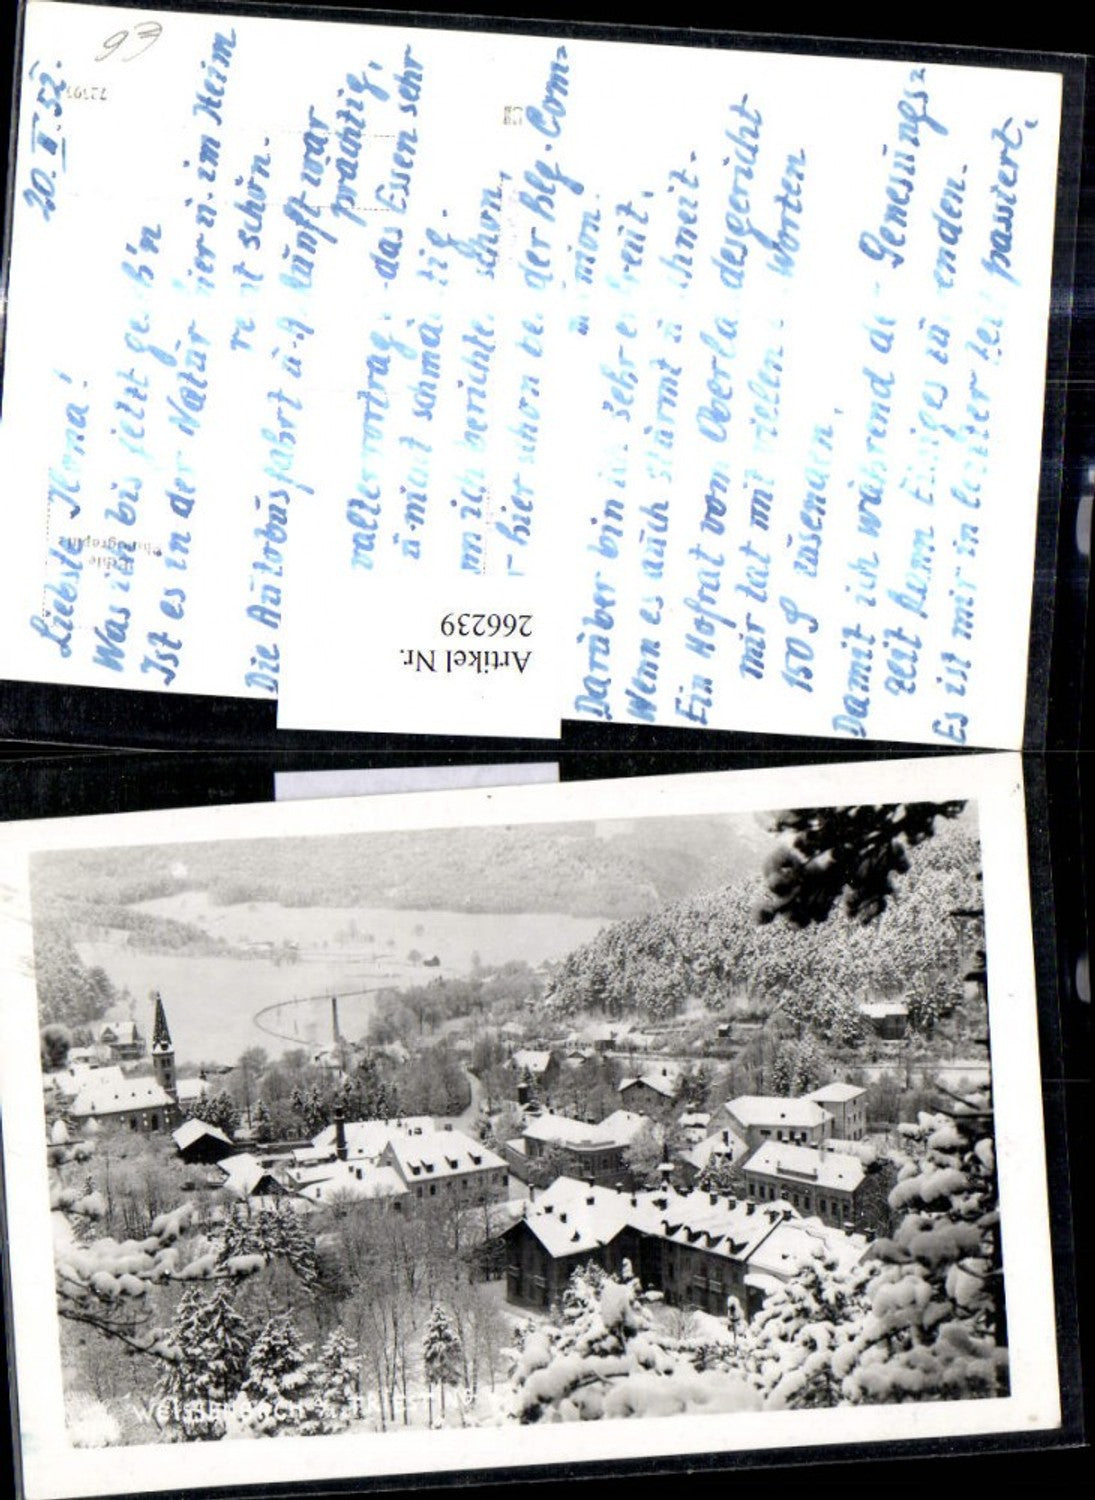 93
20.II.52.
Liebste Ilona!
Was ich bis jetzt geseh'n
Ist es in der Natur hier u. im Heim
recht schön.
Die Autobusfahrt u. Ankunft war
prächtig,
das Essen sehr
u. nicht schmächtig.
schon,
hier schon bei der hlg. Com=
munion.
Darüber bin ich sehr erfreut,
Wenn es auch stürmt u. schneit.
Ein Hofrat vom Oberlandesgericht
mir tat mit vielen Worten
150 S zusenden,
Damit ich während der Genesungs=
zeit kann Einiges zu enden.
Es ist mir in letzter Zeit passiert,
Artikel Nr.
266239
WEISSENBACH a/d. TRIESTING